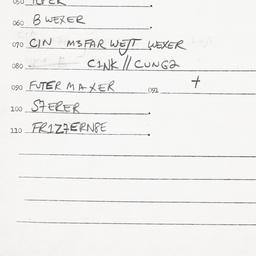 060 B WEXER
070 CIN MSFAR WEJT WEXER
080 CINK // CUNG2
090 FUTER MAXER 091 +
100 S7ERER
110 FR1Z7ERN8E